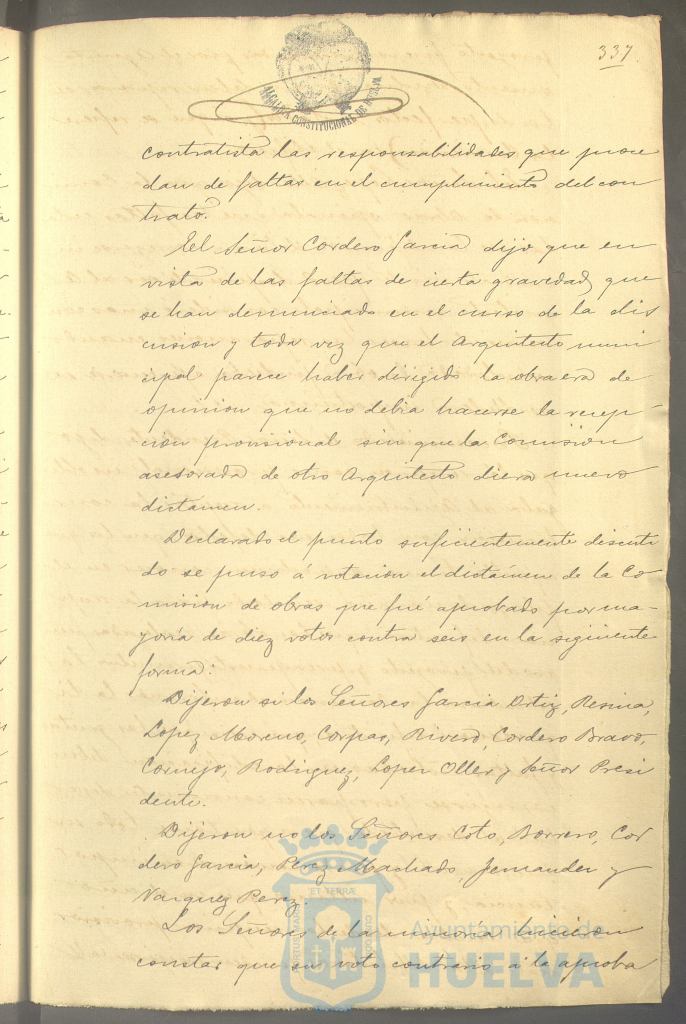 337
ALCALDIA CONSTITUCIONAL DE HUELVA
contratista las responsabilidades que proce
dan de faltas en el cumplimiento del con
trato.
El Señor Cordero Garcia dijo que en
vista de las faltas de cierta gravedad que
se han denunciado en el curso de la dis
cusion y toda vez que el Arquitecto muni
cipal parece haber dirigido la obra era de
opinion que no debia hacerse la recep-
cion provisional sin que la Comision
asesorada de otro Arquitecto diera nuevo
dictamen.
Declarado el punto suficientemente discuti
do se puso á votacion el dictámen de la Co
mision de obras que fué aprobado por ma-
yoría de diez votos contra seis en la siguiente
forma:
Dijeron si los Señores Garcia Ortiz, Resina,
Lopez Moreno, Corpas, Rivero, Cordero Bravo,
Cornejo, Rodriguez, Lopez Oller y Señor Presi
dente.
Dijeron no los Señores Coto, Borrero, Cor
dero Garcia, Perez Machado, Jernandez y
Vazquez Perez.
Los Señores de la minoría hicieron
constar que su voto contrario á la aproba
ET TERRÆ
PORTUS MARIS
CUSTODIA
Ayuntamiento de
HUELVA